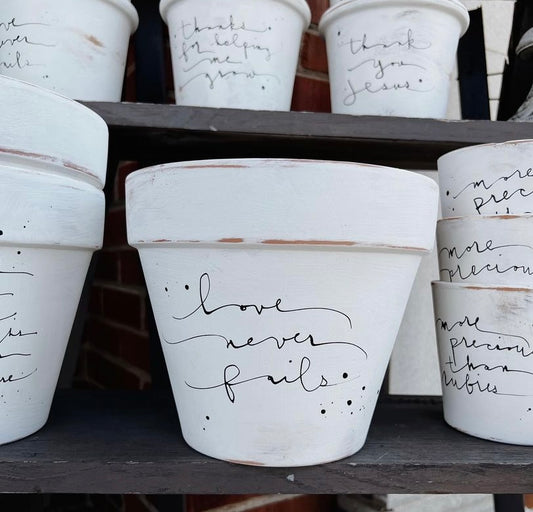 love
never
fails
thanks
for helping
me
grow
thank
you
Jesus
love
never
fails
more
prec
more
preciou
more
preciou
than
rubies